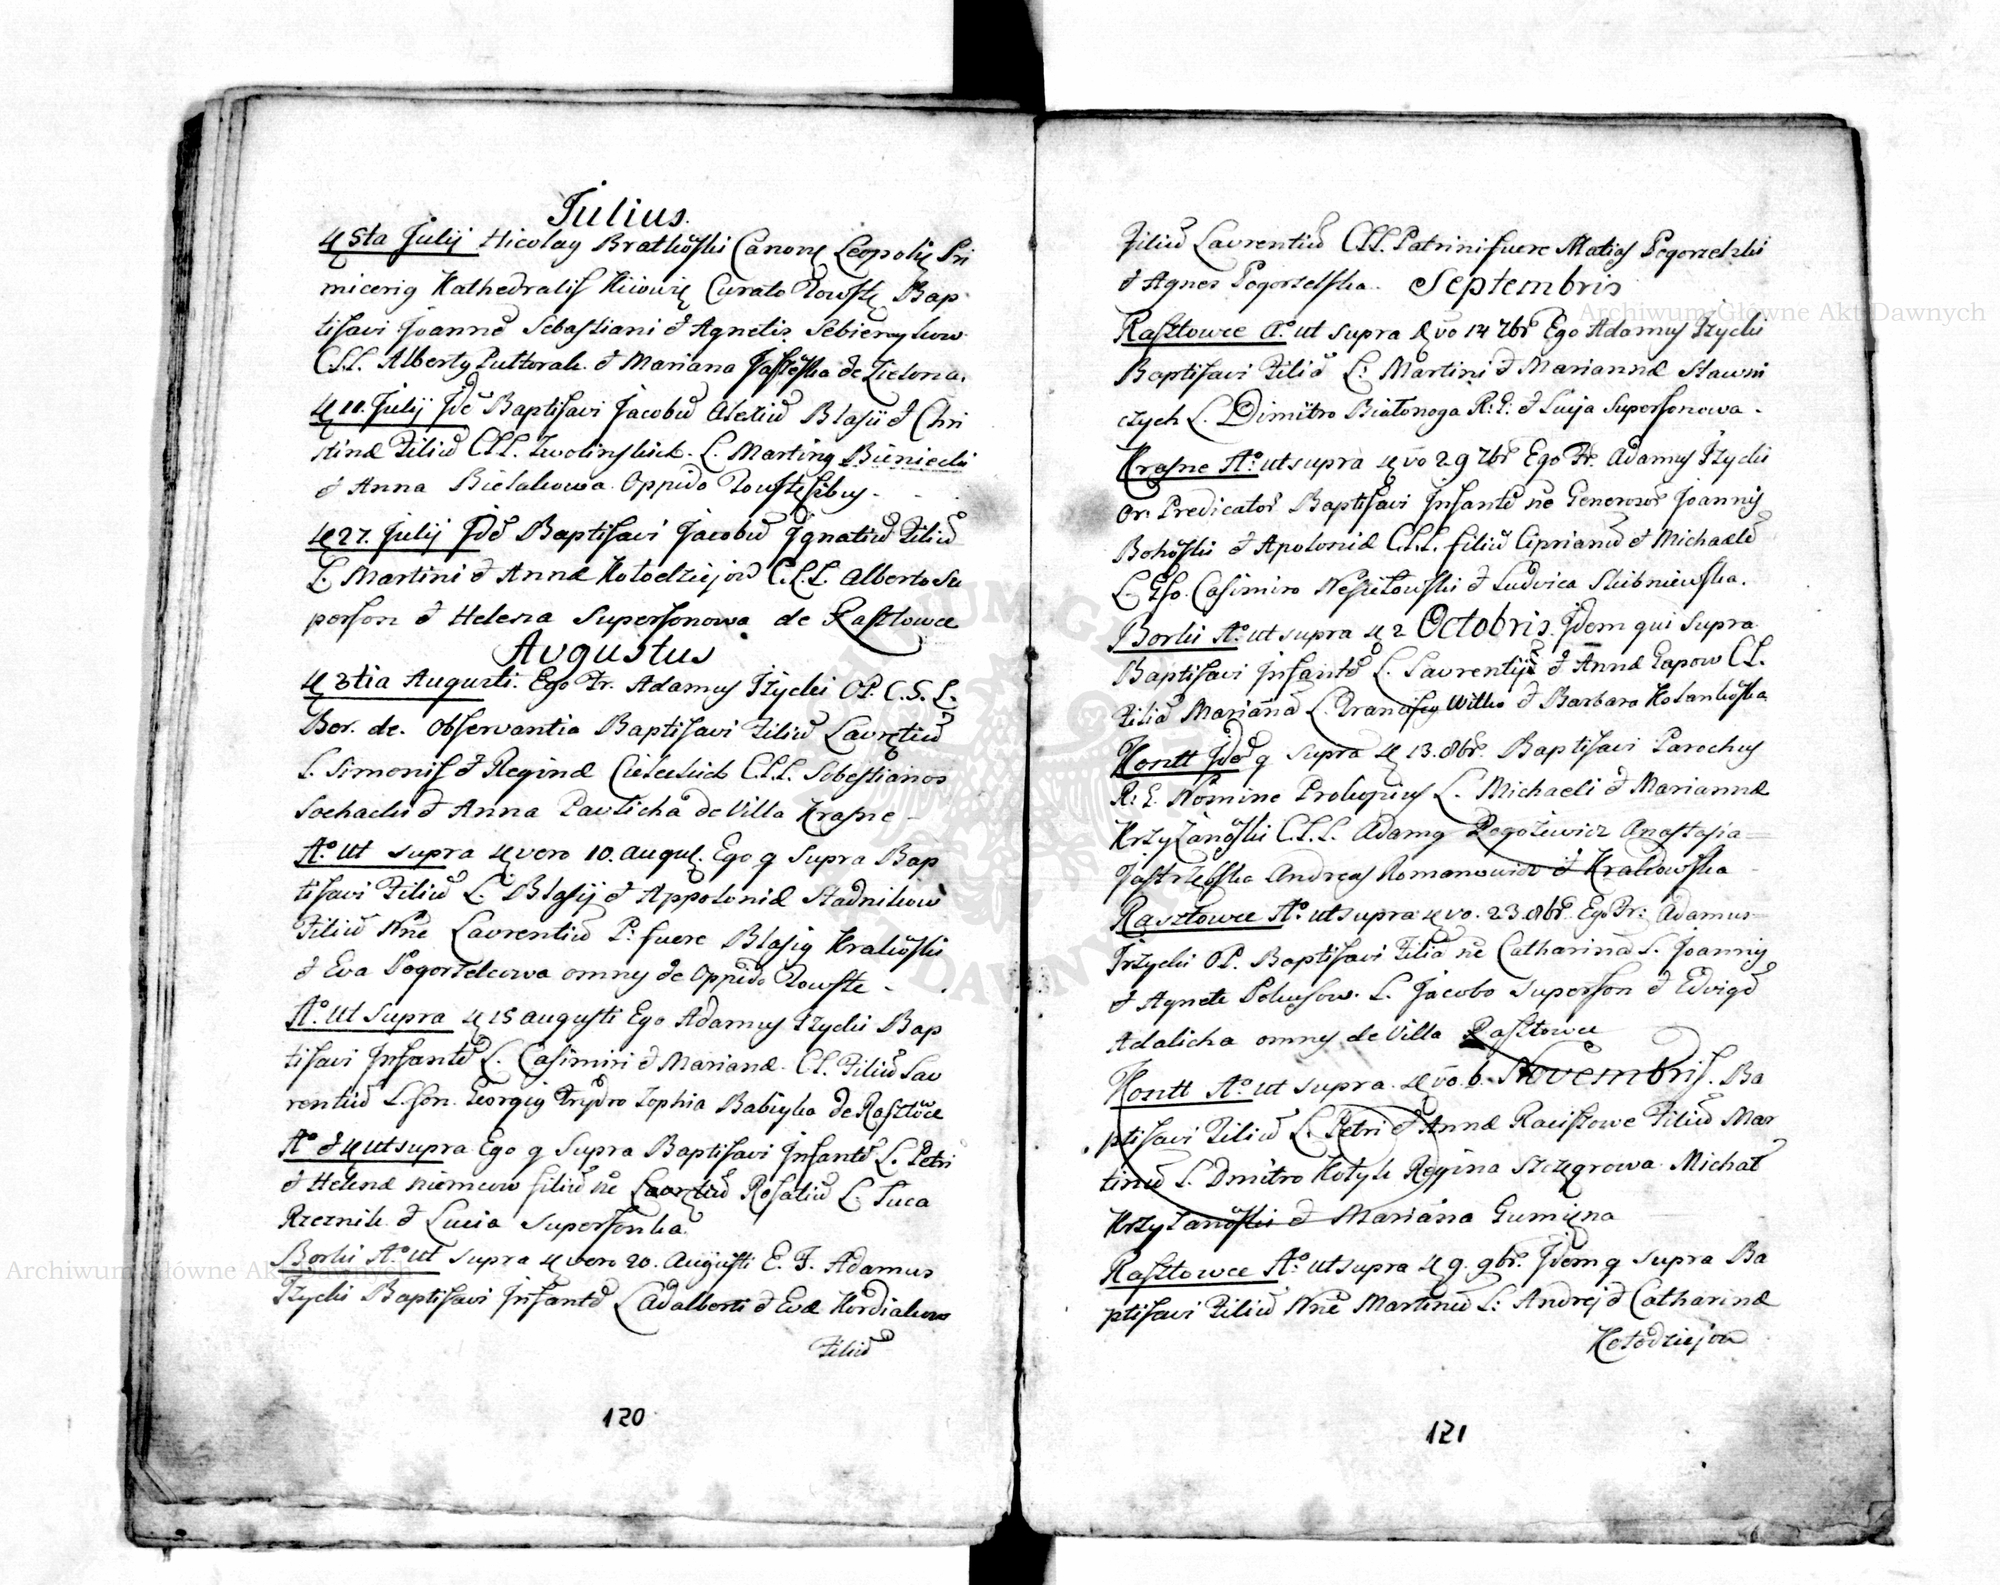 Julius.
5ta Julij Nicolaỹ Bratkoski Canon Leopoli Pri
micerig Kathedralis Kiiovie Curato Towste Bap
tisavi Joanne Sebastiani & Agnetis
C.LL. Alberty Puttorak & Mariana de Zielona.
11. Julij Jde Baptisavi Jacobu Alexiu Blasii & Chri
stinæ Filiu CLL. Zwolinskich. L. Marting Biniecki
& Anna Bielakowa Oppido
27. Julij Jde Baptisavi Jacobu Jgnatiu Filiu
L. Martini & Annæ Kołodziejow C.L.L. Alberto Su
person & Helena Supersonowa de Rasztowce
Augustus
3tia Augusti. Ego Fr. Adamus Trzycki OP. C.S.L.
Bor. de. Observantia Baptisavi Filiu Lavretiu
L. Simonis & Reginæ C.L.L. Sebestianos
Sochacki & Anna Pavlicha de Villa Krasne
Ao. Ut supra vero 10. Augus. Ego q Supra Bap
tisavi Filiu L. Blasij & Appoloniæ Stadnikow
Filiu Nne Laurentiu P: fuere Blasig Krakoski
& Eva Pogorzelcowa omnes de Oppido Towste
Ao. Ut Supra 15 augusti Ego Adamus Trzycki Bap
tisavi Jnfante L. Casimiri & Marianæ. CL. Filiu Lau
rentiu L. Georgig Zophia Babiyka de Rasztowce
Ao & ut supra Ego q Supra Baptisavi Jnfante L. Petri
& Helenæ filiu ne Laurentiu L. Luca
Rzeznik & Lucia Supersonka
Borki Ao. Ut supra vero 20. Augusti E. F. Adamus
Trzycki Baptisavi Jnfante L Adalberti & Evæ Kordiakow
Filiu
120
Filiu Laurentiu CLL. Patrini fuere Matias Pogorzelski
& Agnes Pogorzelska. Septembris
Rasztowce Ao. ut supra vo 14 7br Ego Adamus Trzycki
Baptisavi Filia L: Martini & Mariannæ Sławni
czych L. Dimitro Białonoga R: E. & Lucja Supersonowa.
Krasne Ao. ut supra vo 29 7br Ego Fr. Adamus Trzycki
Or. Predicator Baptisavi Jnfante ne Generosor Joannis
Bohoski & Apoloniæ C.L.L. filiu Ciprianu & Michaele
L. Gso. Casimiro & Ludvica Skibniewska.
Borki Ao. ut supra 2 Octobris. Jdem qui supra
Baptisavi Jnfante L. Laurentij & Annæ Gapow CL.
Filia Mariana L. Wilk & Barbara
Kontt Jde q supra 13. 8br. Baptisavi Parochus
R: E. Nomine Prokopius L. Michaeli & Mariannæ
Krzyżanoski C.L.L. Adamg Anastasia
Jastrzebska Andreas Romanowicz & Krakowska
Rasztowce Ao. ut supra vo. 23. 8br. Ego Fr: Adamus
Trzycki OP. Baptisavi Filia ne Catharina L. Joannis
& Agnete L. Jacobo Superson & Edvige
Adalicha omnes de Villa Rasztowce
Kontt Ao ut supra. vo. 6. Novembris. Ba
ptisavi Filiu L. Petri & Annæ Filiu Mar
tinu L. Dmitro Kotyk Regina Michał
Krzyżanoski & Mariana Gumięna
Rasztowce Ao. ut supra 9. 9br. Jdem q supra Ba
ptisavi Filiu Nne Martinu L: Andrej & Catharinæ
Kołodziejow
121
Archiwum Główne Akt Dawnych
Archiwum Główne Akt Dawnych